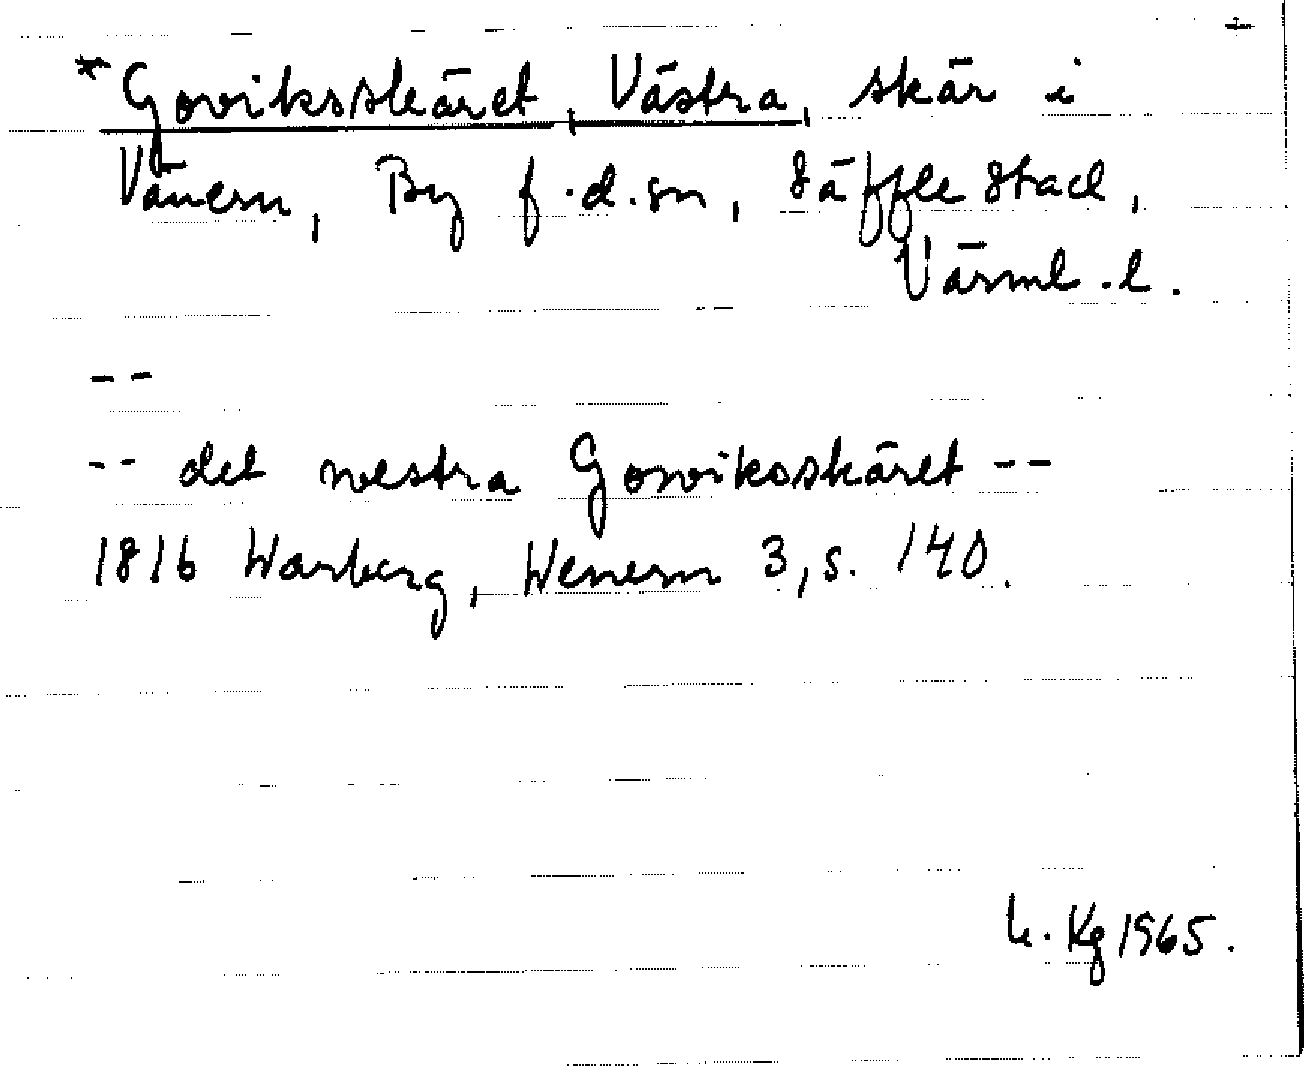 *Goviksskäret, Västra, skär i
Vänern, By f.d.sn, Säffle stad,
Värml.l.
--
-- det westra Gowiksskäret --
1816 Warberg, Wenern 3, s. 140.
Kg 1965.